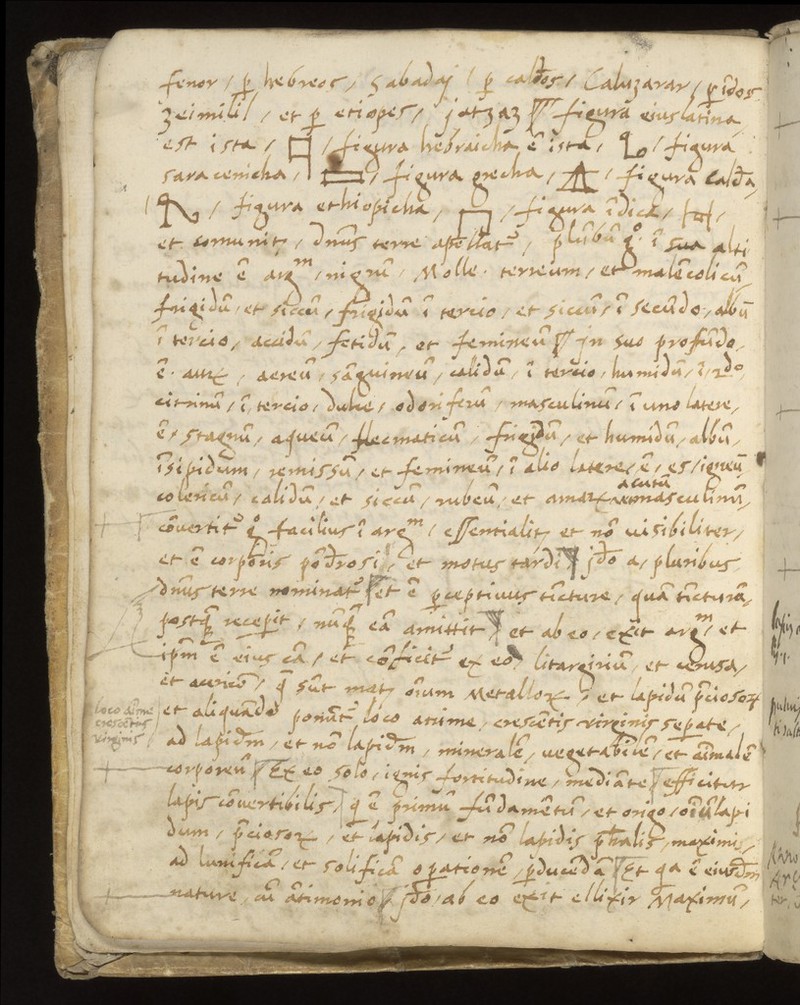 fenor / p̱ hebreos / Sabadaj / p̱ caldͦos / Caluzarar / p̱ īdos
zeimilil / et p̱ etiopes / jatzaz figura eius latina
est ista / / figura hebraicha ē ista / / figura
saracenicha / / figura grecha / / figura calda
/ figura ethiopicha / / figura īdica /
et comunit̄ / dn̄us terre apellat᷑ / plūbū ī sua alti
tudine ē argᵐ / nigrū / Molle / terreum / et malēcolicū
frigidū / et siccū / frigidū ī tercio / et siccū / ī secūdo / albū
ī tercio / accidū / fetidū / et femineū jn suo profūdo
ē / aereū / sāguineū / calidū / ī tercio / humidū / ī / 2do
citrinū / ī tercio / dulce / odoriferū / masculinū / ī uno latere
ē / stagnū / aqueū / flecmaticū / frigidū / et humidū / albū
īsipidum / remissū / et femineū / ī alio latere / ē / es / igneū
colericū / calidū / et siccū / rubeū / et amarꝝ acutū masculinū
cōvertit᷑ facilius ī argᵐ / essentialit̄ et nō uisibiliter /
et ē corporis pōdrosi / et motus tardi jdo a / pluribus
dn̄us terre nominat᷑ et ē p̱ceptiuus tīcture / quā tīcturā
postq̄ recepit / nūq̄ eā amittit et ab eo / exit argᵐ / et
ip̄m ē eius cā / et cōficit᷑ ex eo litargirium / et cerusa /
et / q̄ sūt mat̄ oīum Metallorꝝ / et lapidū p̄ciosorꝝ
et aliquando ponūt᷑ loco anime / crescētis virginis sep̱ate /
loco aīme
crescētis
virginis
ad lapidē / et nō lapidē / mineralē / uegetabilē / et aīmalē
corporeū Ex eo solo / ignis fortitudine / mediāte efficitur
lapis cōvertibilis / q̄ ē primū fūdamētū / et origo / oīū lapi
dum / p̄ciosorꝝ / et lapidis / et nō lapidis / maximis /
ad lunificā / et solificā op̱ationē / p̱ducēdā Et qa ē eiusdē
nature / cū ātimonio jdo / ab eo exit ellixir Maximū /